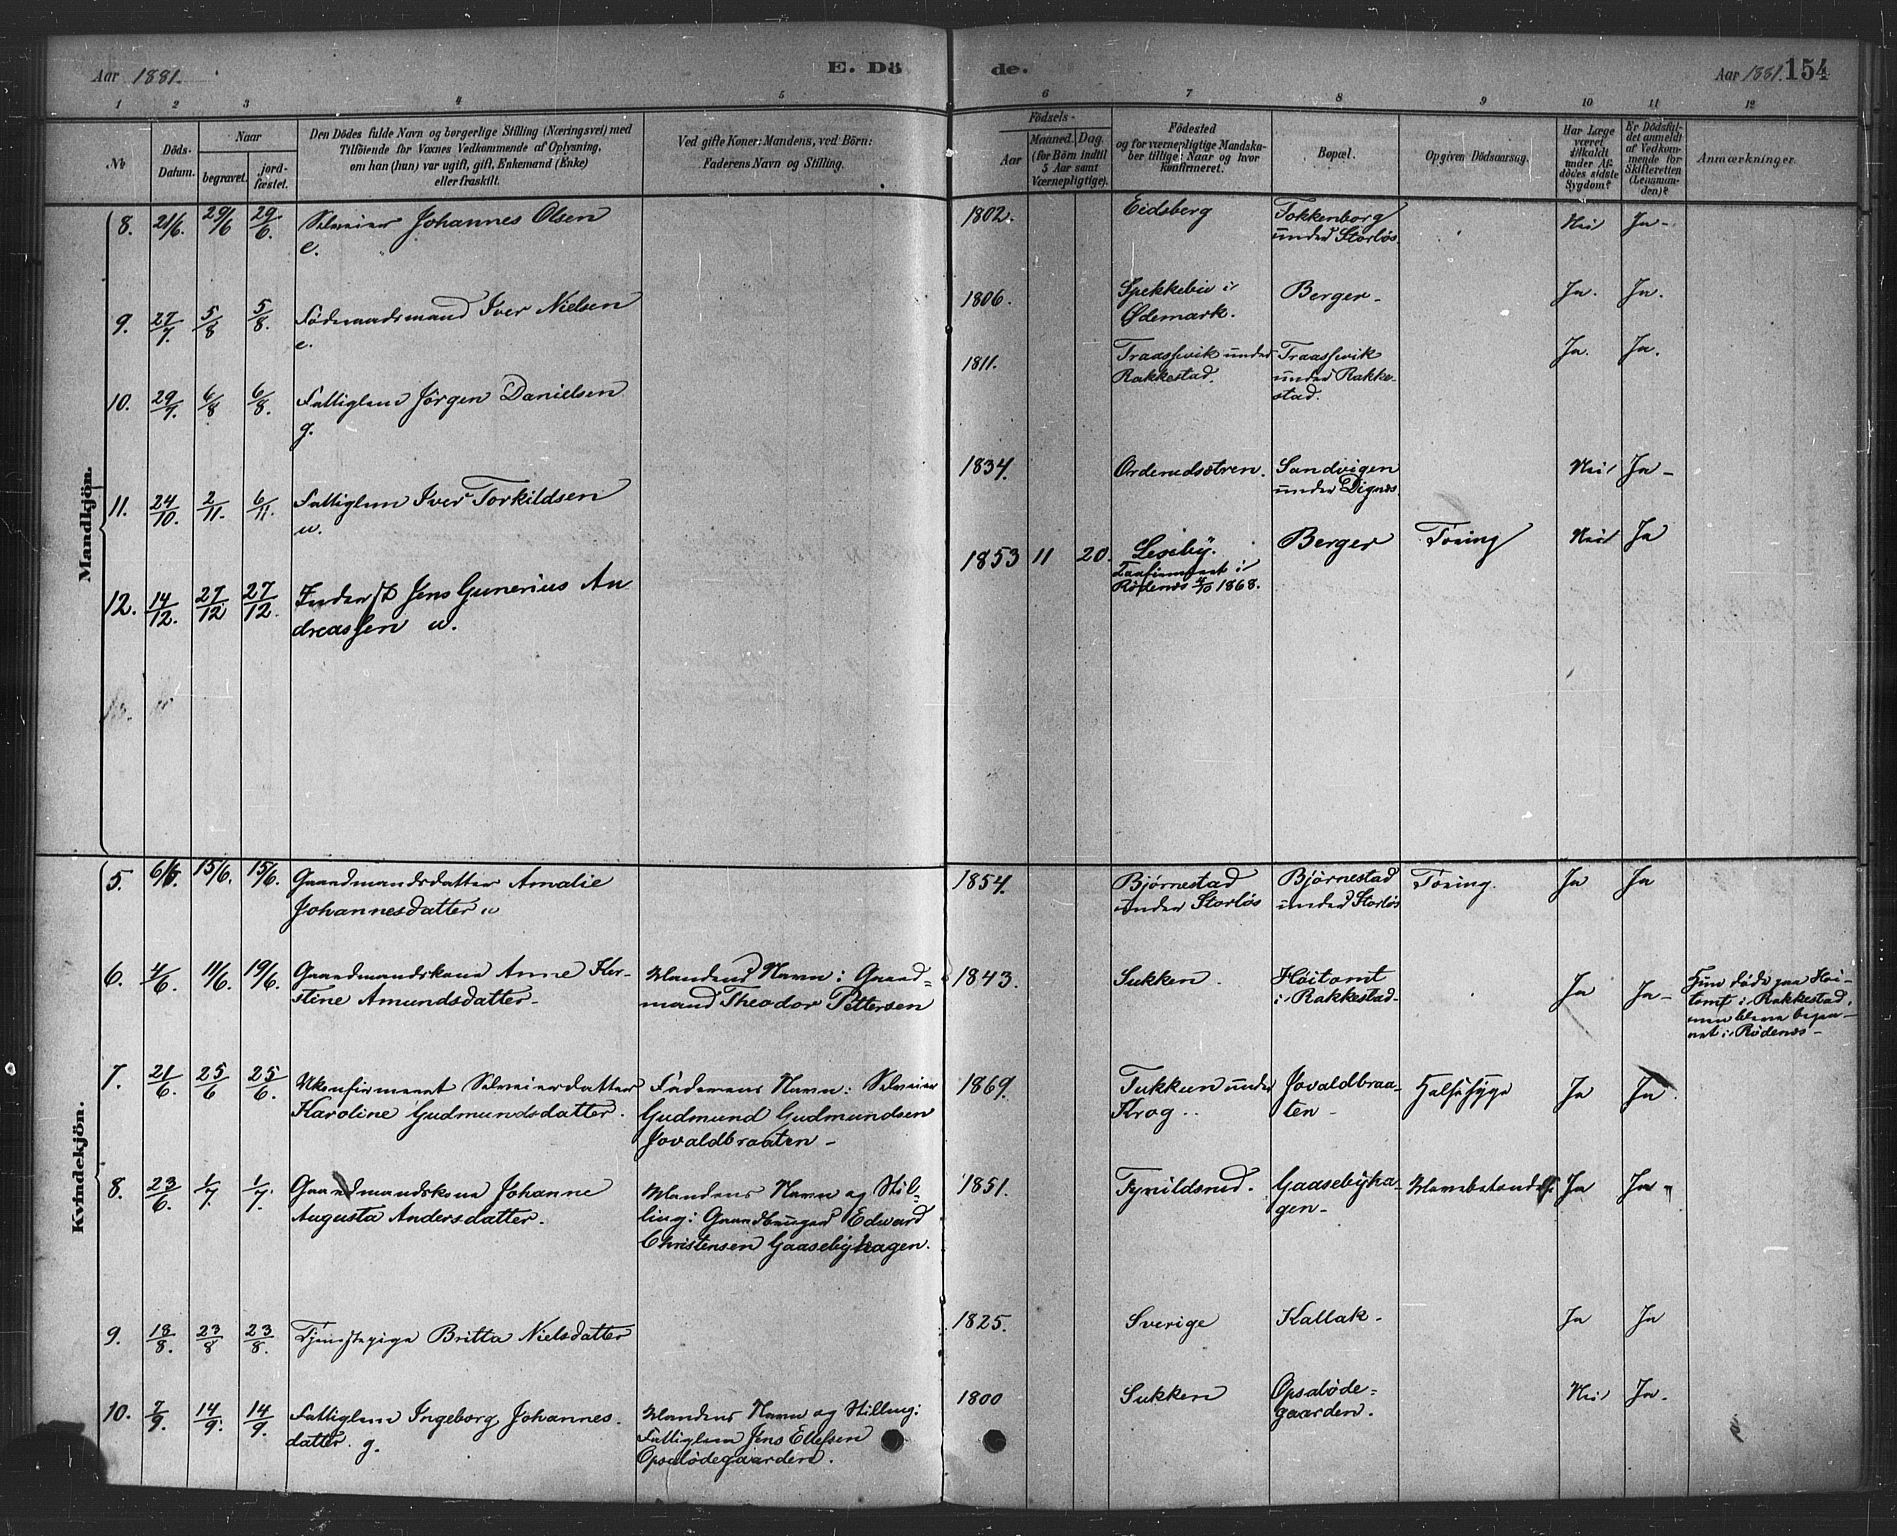 Aar 1881.
E. Dö
de.
Aar 1881.
154
1 2 3 4 5 6 7 8 9 10 11 12
No
Döds-
Datum.
Naar
begravet.
jord-
fæstet.
Den Dödes fulde Navn og borgerlige Stilling (Næringsvei) med
Tilföiende for Voxnes Vedkommende af Oplysning,
om han (hun) var ugift, gift, Enkemand (Enke)
eller fraskilt.
Ved gifte Koner: Mandens, ved Börn:
Faderens Navn og Stilling.
Födsels-
Aar
Maaned. Dag.
(for Börn indtil
5 Aar samt
Værnepligtige).
Födested
og for værnepligtige Mandska-
ber tillige: Naar og hvor
konfirmeret.
Bopæl.
Opgiven Dödsaarsag.
Har Læge
været
tilkaldt
under Af-
dödes sidste
Sygdom?
Er Dödsfal-
det anmeldt
af Vedkom-
mende for
Skifteretten
(Lensman-
den)?
Anmærkninger.
Mandkjön.
8. 21/6. 29/6 29/6. Selveier Johannes Olsen
e.
1802. Eidsberg
Tokkenborg
under Storløs.
Nei Ja-
9. 27/7. 5/8 5/8. Föderaadsmand Iver Nielsen
e.
1806. Spekkebu i
Ødemark.
Berger- Ja. Ja.
10. 29/7. 6/8 6/8. Fattiglem Jørgen Danielsen
g.
1811. Traassevik under
Rakkestad.
Traassevik
under Rakke-
stad.
Ja. Ja.
11. 24/10. 2/11. 6/11. Fattiglem Iver Torkildsen
u.
1834. Orderudsætren.
Sandvigen
under Dignæs.
Nei Ja-
12. 14/12. 27/12 27/12. Inderst Jens Gunerius An
dreassen u.
1853 11 20. Leseby.
Konfirmeret i
Rødenes 4/10 1868.
Berger Tæring Nei Ja
Kvindekjön.
5. 6/6. 15/6. 15/6. Gaardmandsdatter Amalie
Johannesdatter u
1854. Bjørnestad
under Storløs
Bjørnestad
under Storløs
Tæring. Ja Ja
6. 4/6. 11/6. 19/6. Gaardmandskone Anne Ker-
stine Amundsdatter-
Mandens Navn: Gaard=
mand Theodor Pettersen
1843. Sukken.
Høitomt
i Rakkestad-
Ja Ja-
Hun døde paa Høi-
tomt i Rakkestad,
men blev begra-
vet i Rødenæs-
7. 21/6. 25/6 25/6. Ukonfirmeret Selveierdatter
Karoline Gudmundsdatter.
Faderens Navn: Selveier
Gudmund Gudmundsen
Jovaldbraaten-
1869. Tukkun under
Krog..
Jovaldbraa-
ten-
Halssyge Ja Ja.
8. 23/6. 1/7. 1/7. Gaardmandskone Johanne
Augusta Andersdatter.
Mandens Navn og Stil-
ling: Gaardbruger Edvard
Christensen Gaasebyhagen.
1851. Fynildsrud.
Gaasebyha-
gen-
Mavebetændelse Ja Ja-
9. 18/8. 23/8 23/8. Tjenestepige Britta Nielsdatter
1825. Sverige Kallak- Ja Ja
10. 7/9. 14/9. 14/9. Fattiglem Ingeborg Johannes.
datter. g.
Mandens Navn og Stilling:
Fattiglem Jens Ellefsen
Opsalødegaarden.
1800 Sukken
Opsaløde=
gaarden.
Nei Ja.